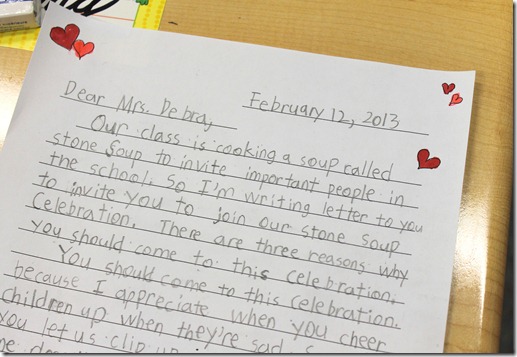 February 12, 2013
Dear Mrs. Debra,
Our class is cooking a soup called
stone soup to invite important people in
the school. So I'm writing letter to you
to invite you to join our stone soup
Celebration. There are three reasons why
you should come to this celebration.
You should come to this celebration.
because I appreciate when you cheer
children up when they're sad
you let us clip up